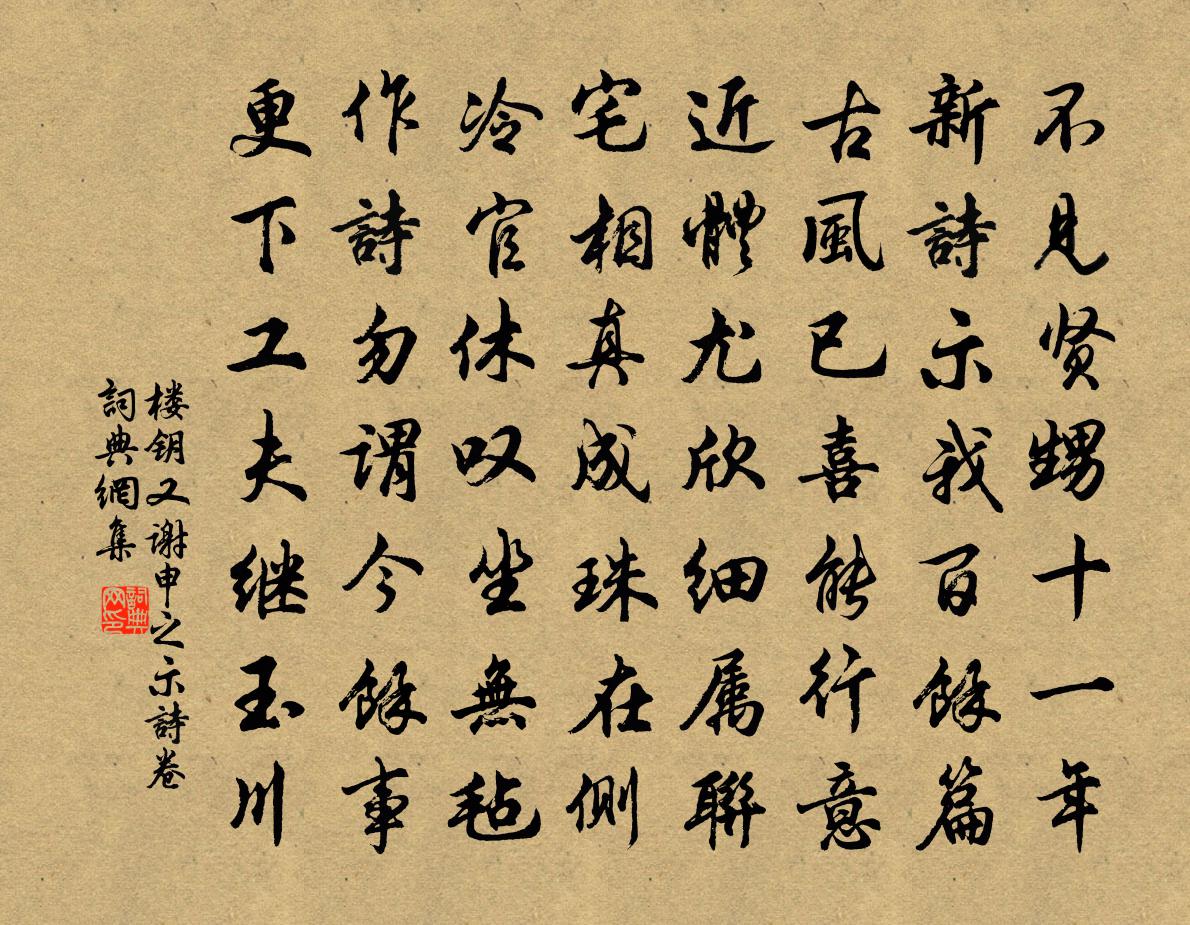 不見贤甥十一年
新詩示我百餘篇
古風已喜能行意
近體尤欣細属聯
宅相真成珠在側
冷官休叹坐無毡
作詩勿谓今餘事
更下工夫继玉川
楼钥又谢申之示詩卷
詞典網集
詞典网印